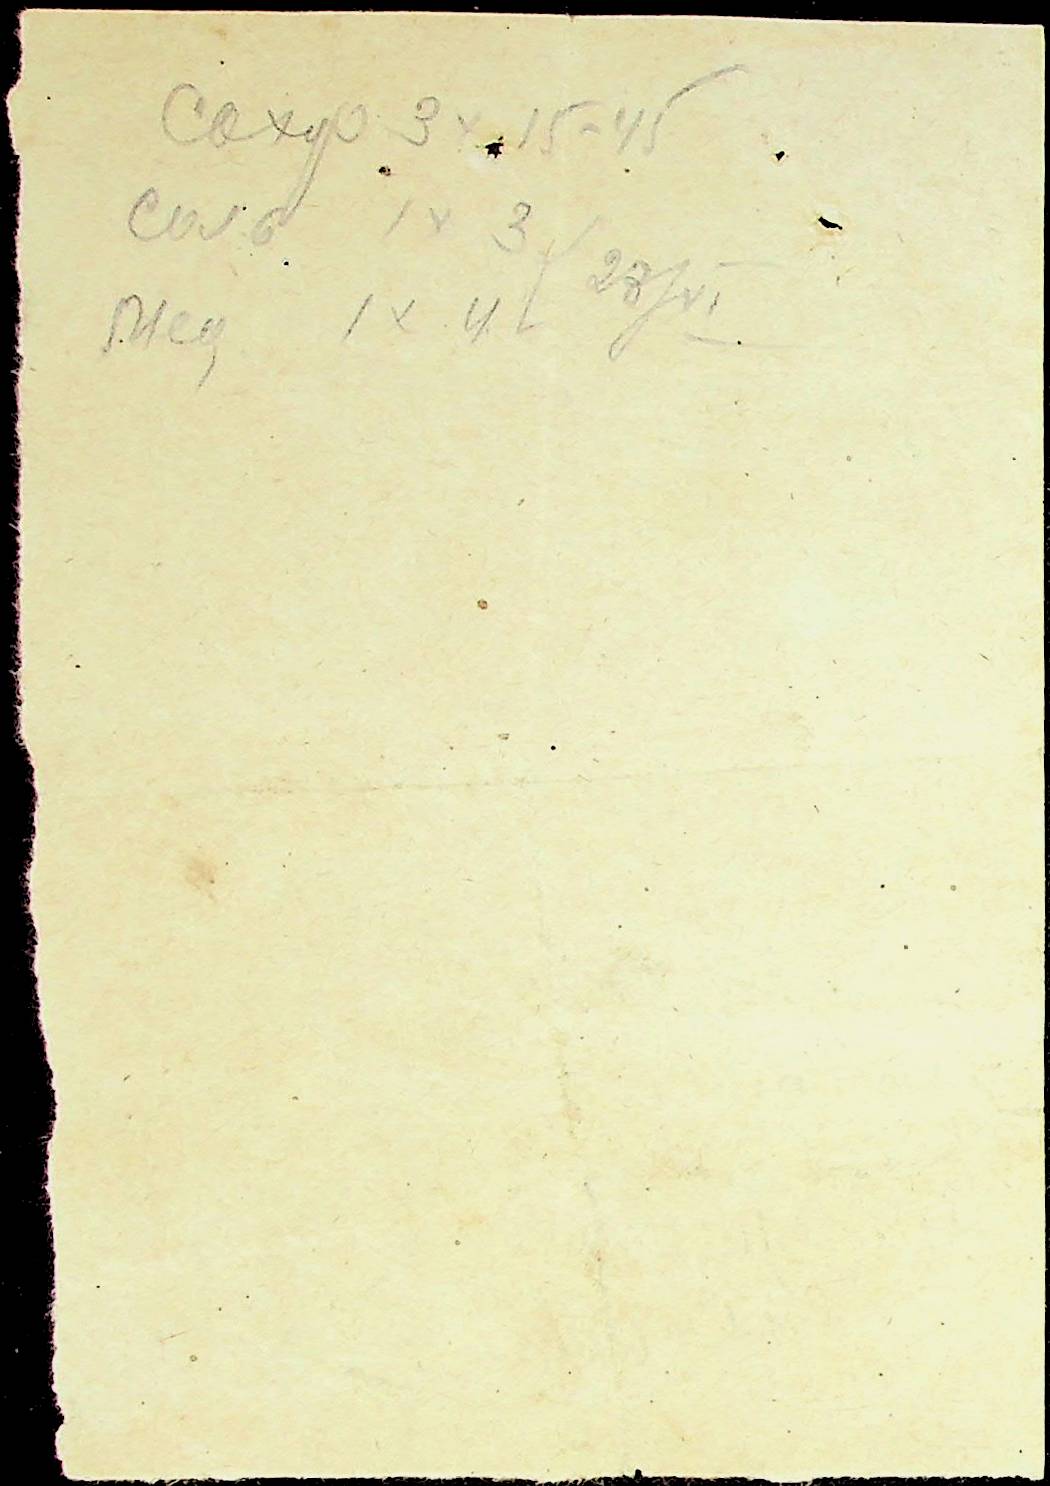 Сахар 3 x 15-45
Соль 1 x 3
27/VI
Мед 1 x 4